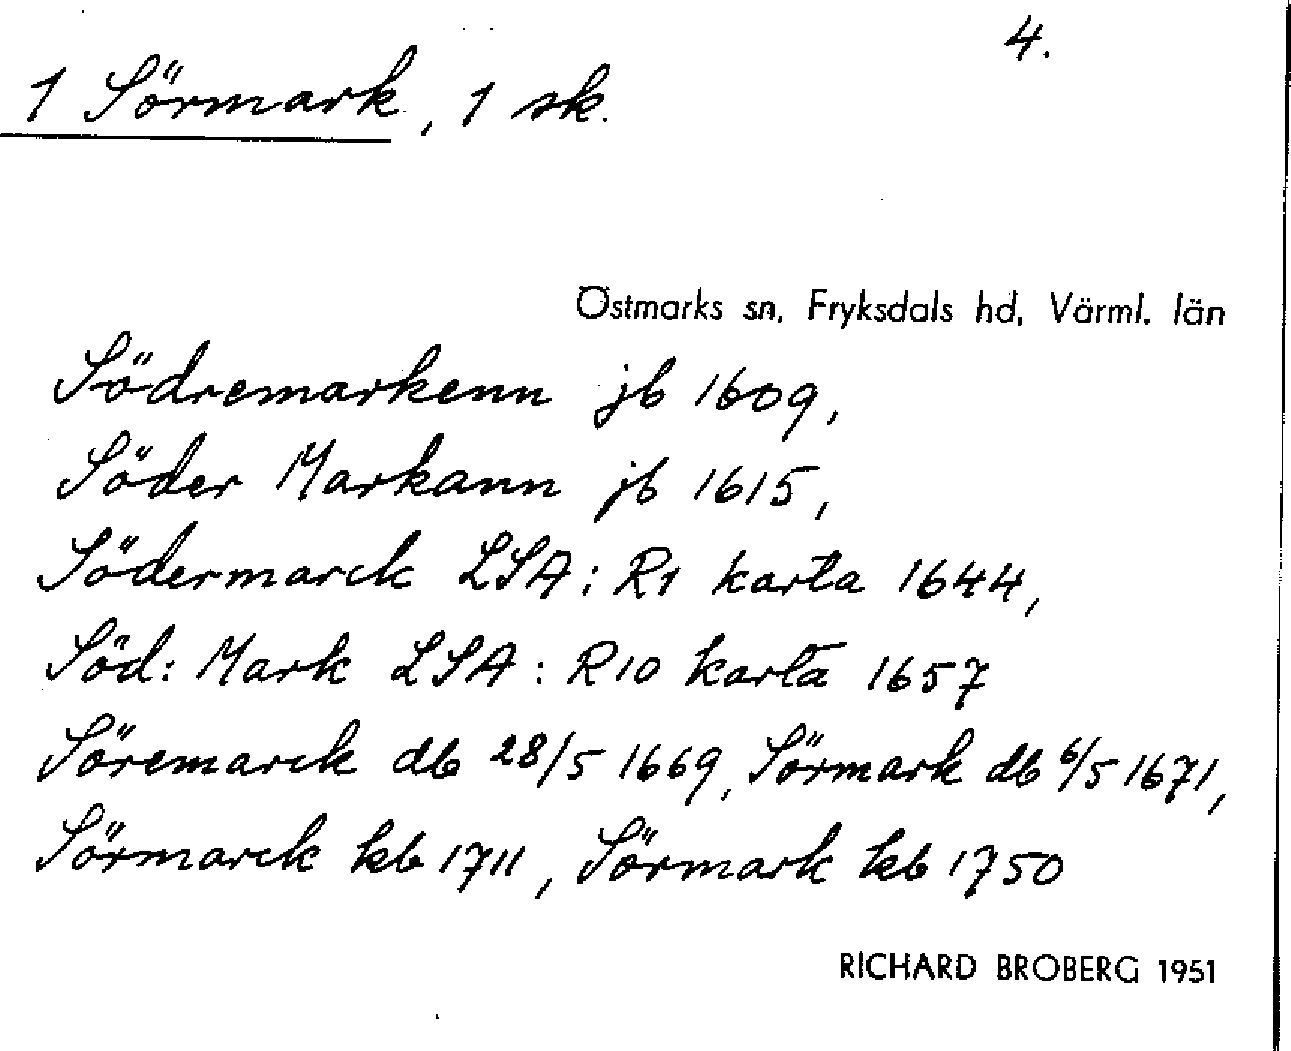 4.
1 Sörmark, 1 sk.
Östmarks sn, Fryksdals hd, Värml. län
Södremarkenn jb 1609,
Söder Markann jb 1615,
Södermarck LSA: R1 karta 1644,
Söd: Mark LSA: R10 karta 1657
Söremarck db 28/5 1669, Sörmark db 6/5 1671,
Sörmarck kb 1711, Sörmark kb 1750
RICHARD BROBERG 1951